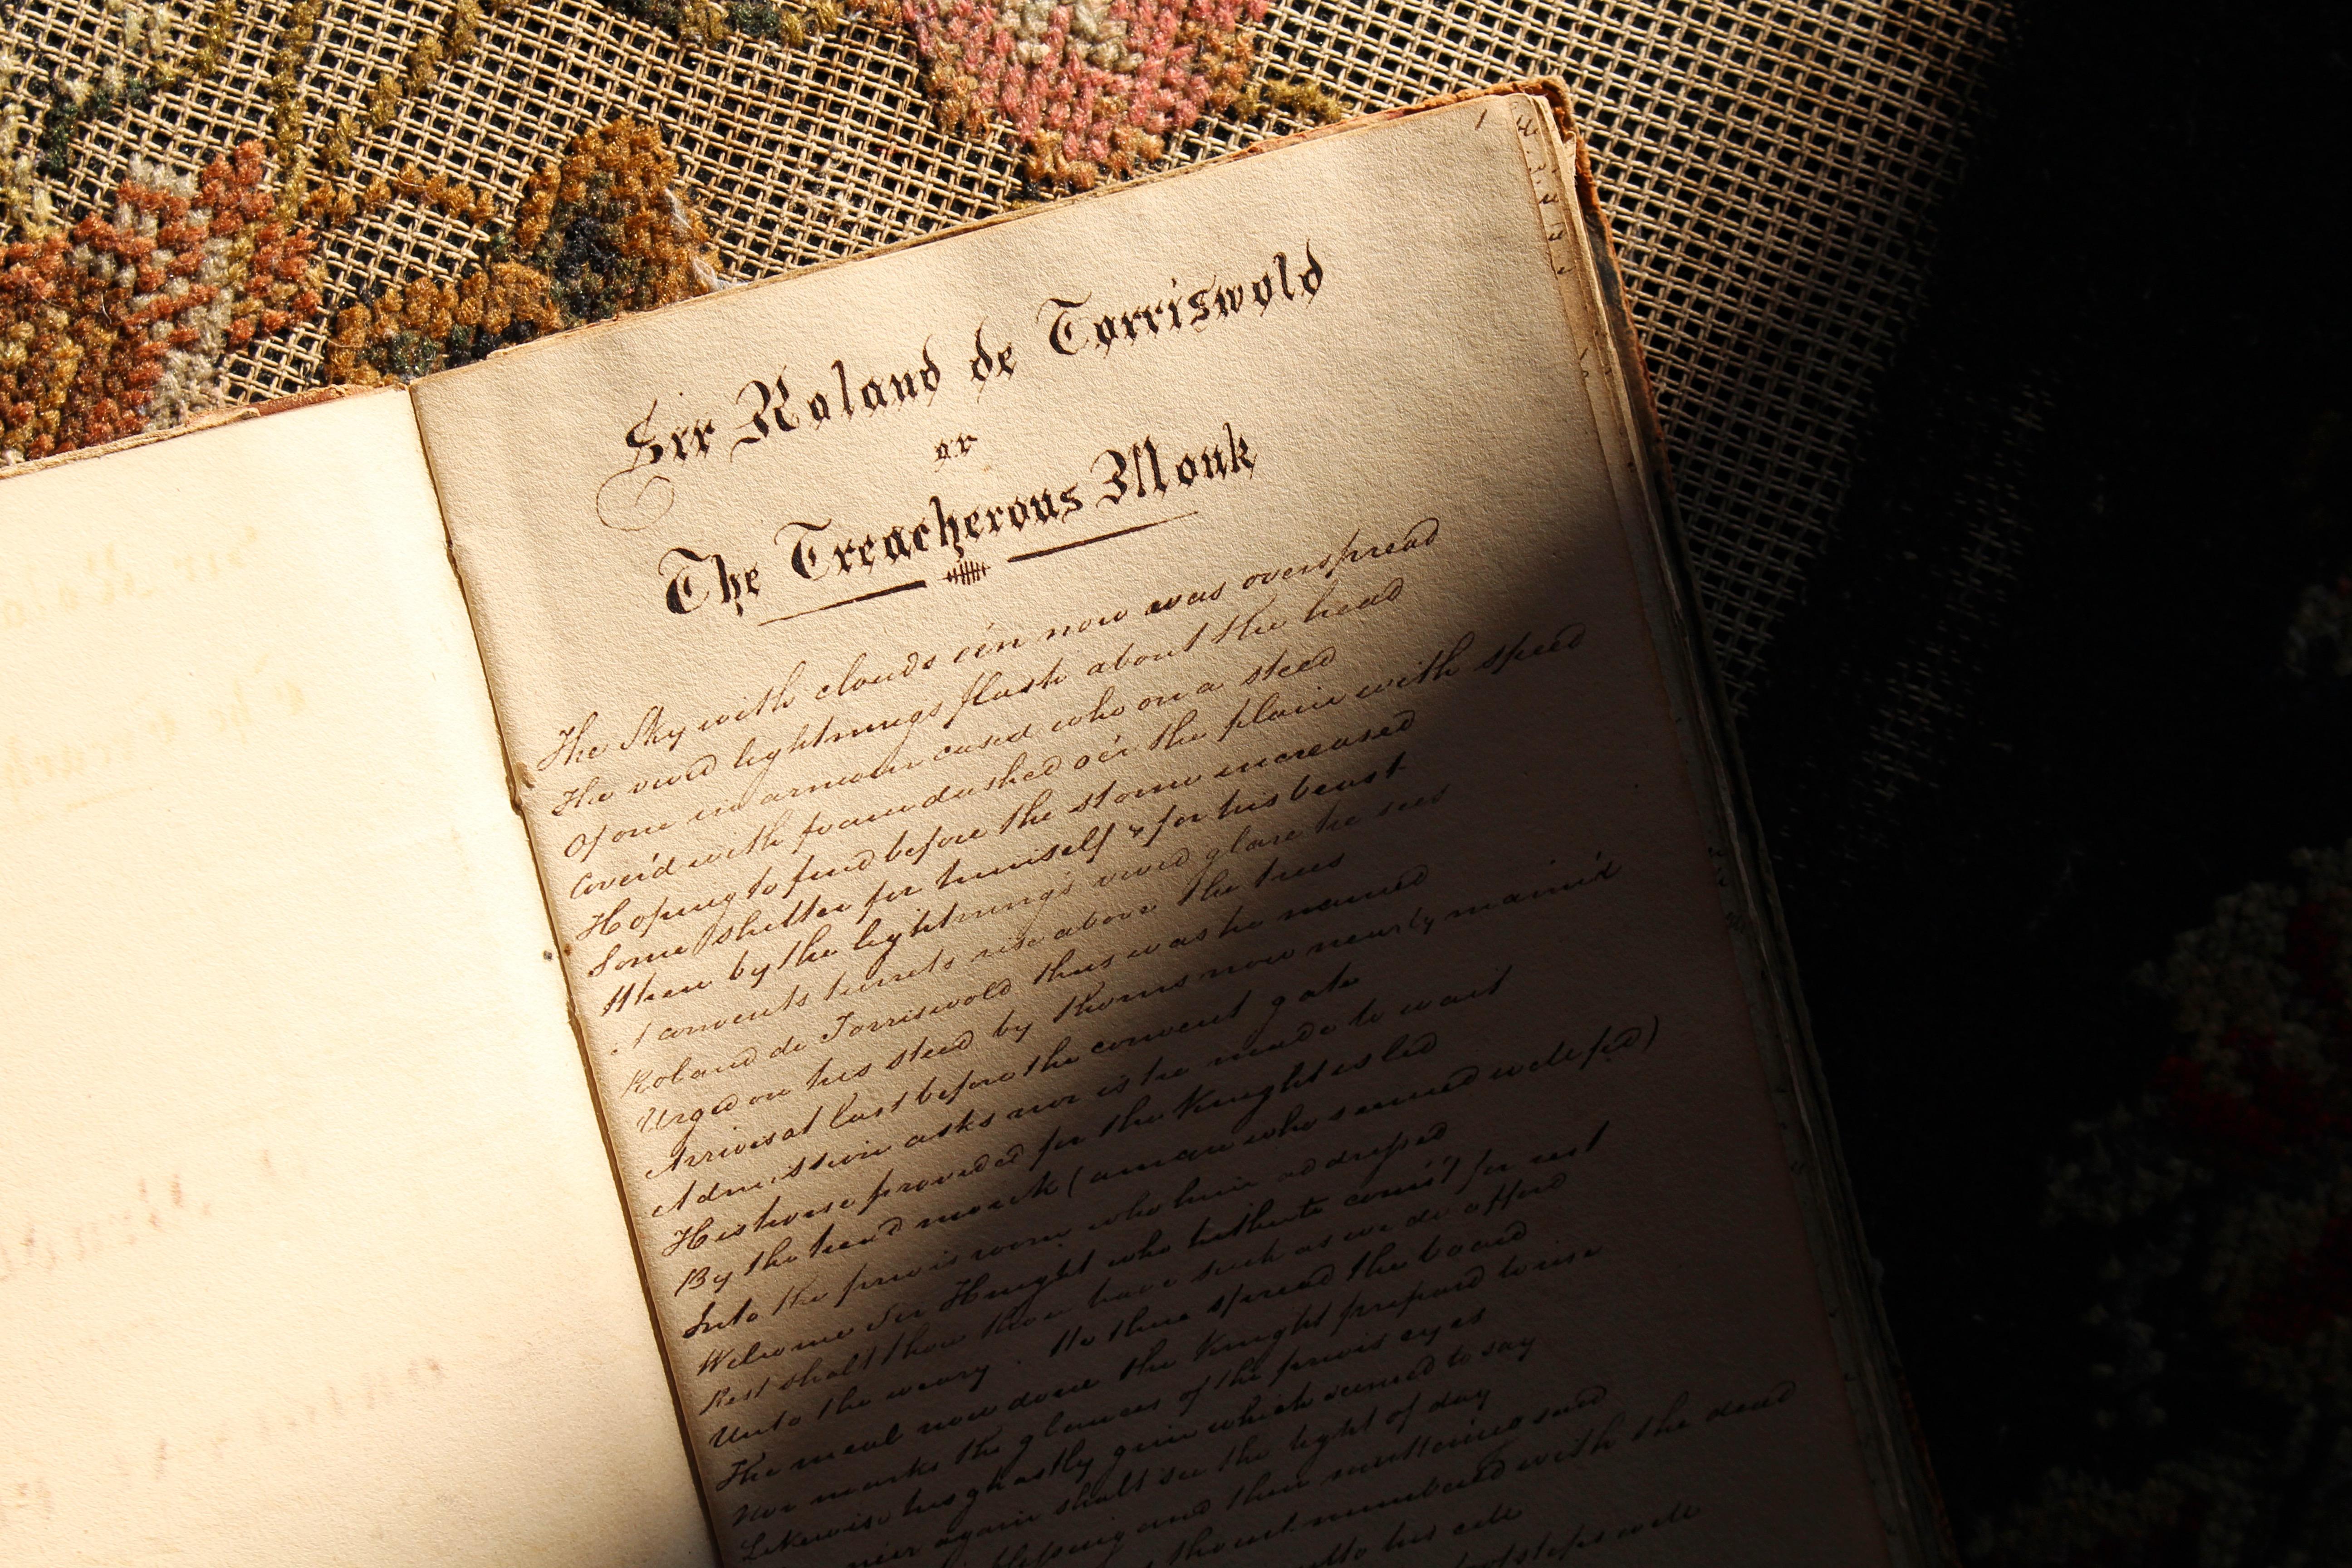 1
Sir Roland de Torriswold
or
The Treacherous Monk
The Sky with clouds e'en now was overspread
The vivid lightnings flash about the head
Of one in armour cased who on a steed
Cover'd with foam dashed o'er the plain with speed
Hoping to find before the storm increased
Some shelter for himself & for his beast
When by the lightning's vivid glare he sees
A convents turrets rise above the trees
Roland de Torriswold thus was he named
Urged on his steed by thorns now nearly maim'd
Arrives at last before the convent gate
Admission asks nor is he made to wait
His horse provided for the Knight is led
By the head monk (a man who seemed well fed)
Into the priors room who him addressed
Welcome Sir Knight who hither com'st for rest
Rest shalt thou have such as we do afford
Unto the weary. He then spread the board
The meal now done the Knight prepared to rise
Nor marks the glances of the priors eyes
Likewise his ghastly grin which seemed to say
never again shalt see the light of day
blessing and then muttering said
thou'rt numbered with the dead
to his cell
footsteps well